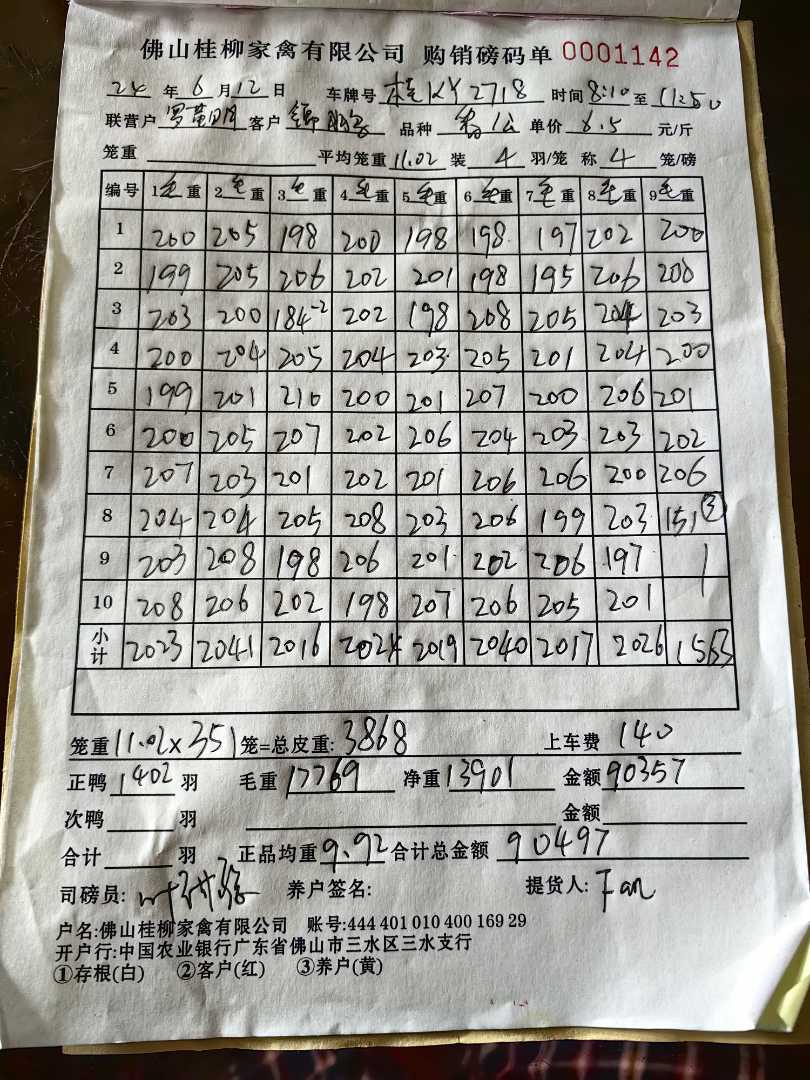 佛山桂柳家禽有限公司 购销磅码单 0001142
24 年 6 月 12 日 车牌号 桂KY2718 时间 8:10 至 11:50
联营户 罗黄明 客户 品种 公 单价 6.5 元/斤
笼重 平均笼重 11.02 装 4 羽/笼 称 4 笼/磅
编号 1毛重 2毛重 3毛重 4毛重 5毛重 6毛重 7毛重 8毛重 9毛重
1 200 205 198 200 198 198 197 202 200
2 199 205 206 202 201 198 195 206 200
3 203 200 184-2 202 198 208 205 204 203
4 200 204 205 204 203 205 201 204 200
5 199 201 210 200 201 207 200 206 201
6 200 205 207 202 206 204 203 203 202
7 207 203 201 202 201 206 206 200 206
8 204 204 205 208 203 206 199 203 151③
9 203 208 198 206 201 202 206 197
10 208 206 202 198 207 206 205 201
小计 2023 2041 2016 2024 2019 2040 2017 2026 1563
笼重 11.02×351 笼=总皮重: 3868 上车费 140
正鸭 1402 羽 毛重 17769 净重 13901 金额 90357
次鸭 羽 金额
合计 羽 正品均重 9.92 合计总金额 90497
司磅员: 养户签名: 提货人: Fan
户名:佛山桂柳家禽有限公司 账号:444 401 010 400 169 29
开户行:中国农业银行广东省佛山市三水区三水支行
①存根(白) ②客户(红) ③养户(黄)